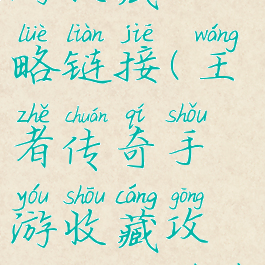 lüè liàn jiē wáng
略链接(王
zhě chuán qí shǒu
者传奇手
yóu shōu cáng gōng
游收藏攻